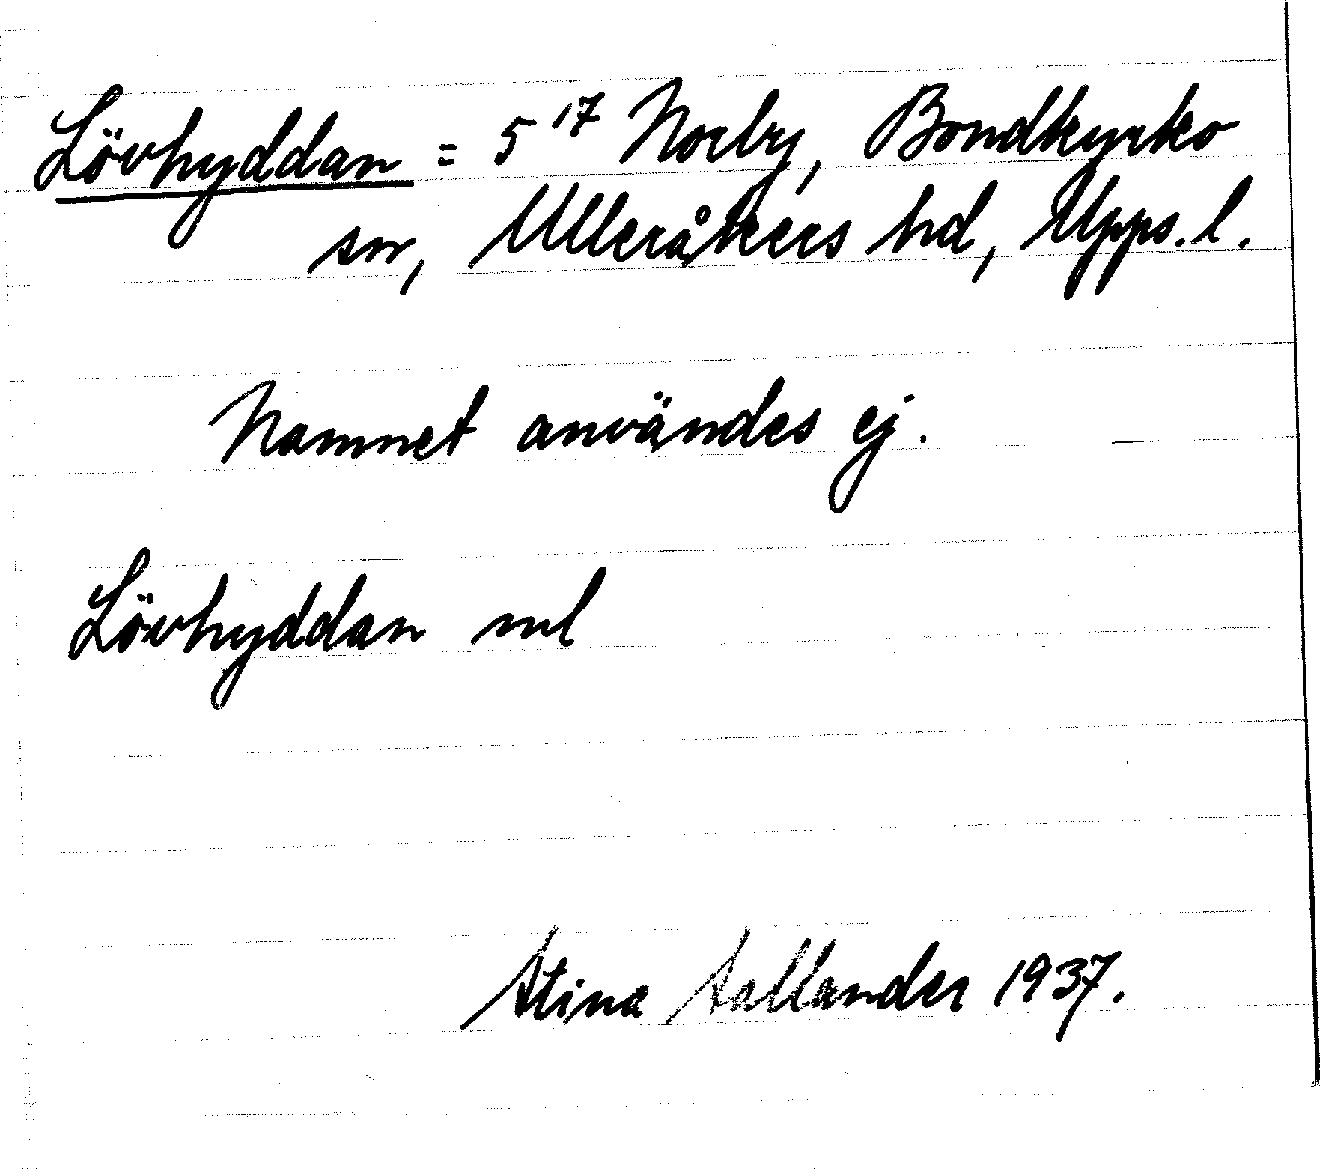 Lövhyddan = 5¹⁷ Norby, Bondkyrko
sn, Ulleråkers hd, Upps. l.
Namnet användes ej.
Lövhyddan ml
Stina Sallander 1937.